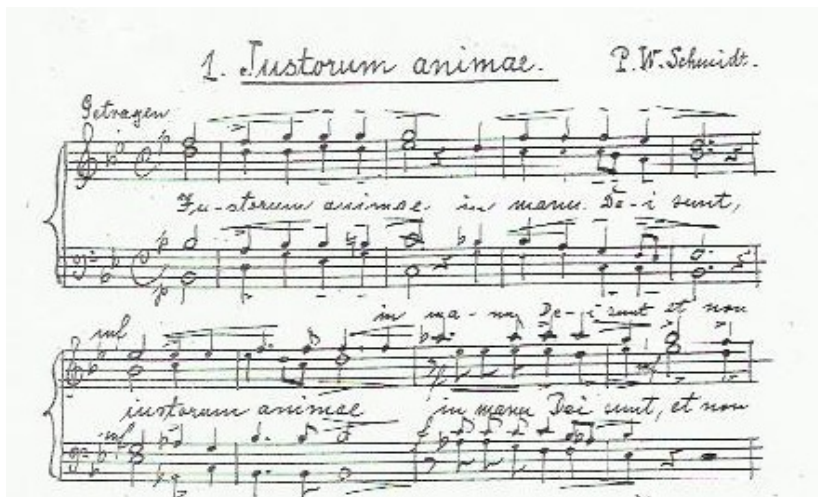 1. Justorum animae. P. W. Schmidt.
Getragen
p
Ju-storum animae in manu De-i sunt,
p
p
in ma-nu De-i sunt et non
mf
iustorum animae in manu Dei sunt, et non
mf
f